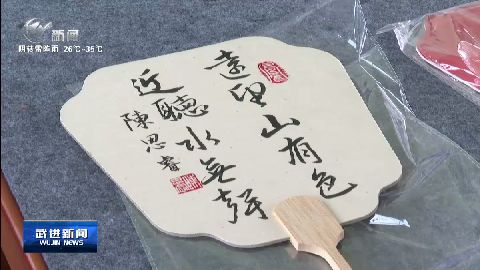 新闻
阴转雷阵雨 26℃-35℃
遠望山有色
近聽水無聲
陳思睿
武进新闻
WUJIN NEWS